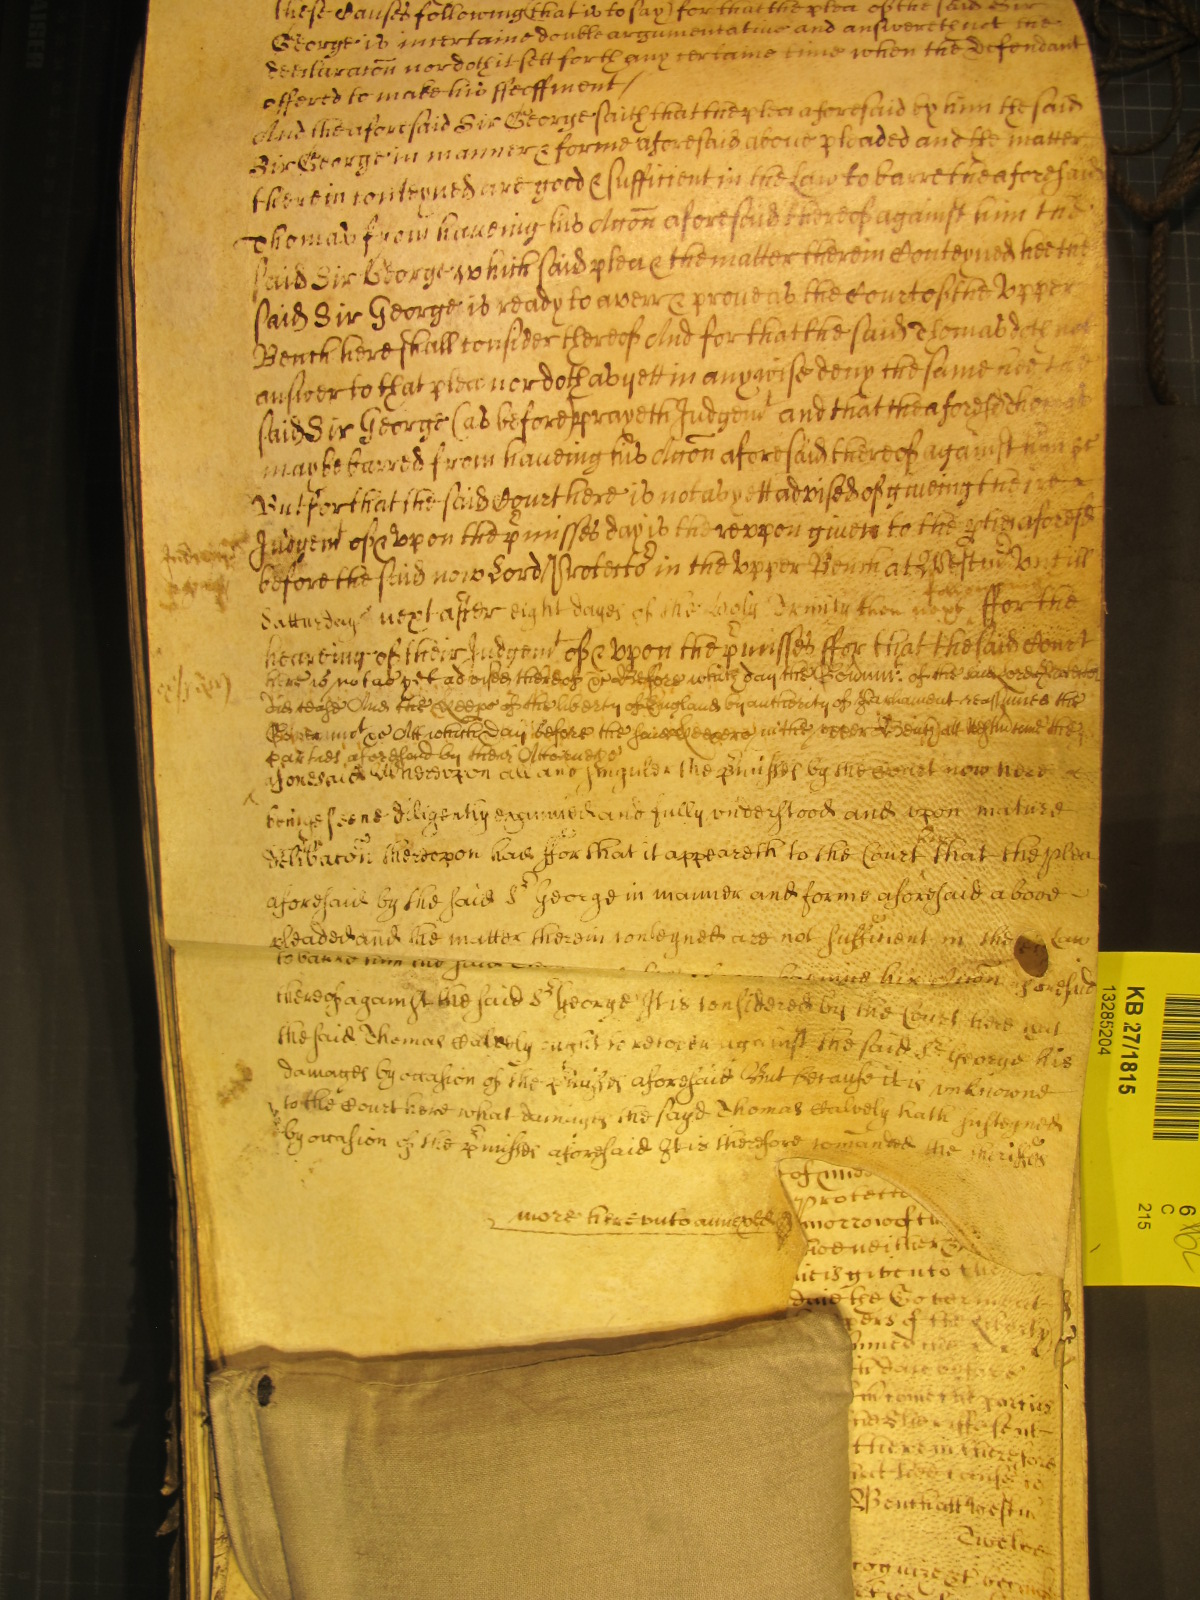 these Causes following (that is to say) for that the plea of the said Sir
George is incertaine double argumentative and answereth not the
declaracon nor doth it sett forth any certaine time when the Defendant
offered to make his ffeoffment /
And the aforesaid Sir George saith that the plea aforesaid by him the said
Sir George in manner & forme aforesaid above pleaded and the matter
therein conteyned are good & sufficient in the Law to barre the aforesaid
Thomas from haveing his Accon aforesaid thereof against him the
said Sir George which said plea & the matter therein Conteyned hee the
said Sir George is ready to averr & prove as the Court of the Upper
Bench here shall consider thereof And for that the said Thomas doth not
answer to that plea nor doth as yett in any wise deny the same hee the
said Sir George (as before) prayeth Judgemt and that the aforesd Thomas
may be barred from haveing his Accon aforesaid thereof against him &c
But for that the said Court here is not as yett advised of giveing their
Judgemt of & upon the pmisses day is thereupon given to the pties aforesd
before the said now Lord Protector in the Upper Bench at Westmr untill
Satturday next after eight dayes of the holy Trinity then next ffor the
heareing of their Judgemt of & upon the pmisses ffor that the said Court
here is not as yet advised thereof &c Before which day the Governmt of the said Lord Protector
did cease And the Keeps of the liberty of England by authority of Parliament reassumed the
Governmt &c Att which day before the said Keepers in the Upper Bench att Westm came the
parties aforesaid by their Attorneys
aforesaid Whereupon all and singuler the pmisses by the Court now here
being seene diligently examined and fully understood and upon mature
delibacon thereupon had ffor that it appeareth to the Court that the plea
aforesaid by the said Sr George in manner and forme aforesaid above
pleaded and the matter therein conteyned are not sufficient in the Law
to barre him the said his Accon aforesaid
thereof against the said Sr George It is considered by the Court here that
the said Thomas Calvely ought to recover against the said Sr George his
damages by occasion of the pmisses aforesaid But because it is unknowne
to the Court here what damages the sayd Thomas Calvely hath susteyned
by occasion of the pmisses aforesaid It is therefore comanded the sheriffes
more hereunto annexed
morrow of th
hee neither
it is given to the
Govermt
pers of the Liberty
the parties
sheriffe sent
therein therefore
Bench att Westm
Twelve
KB 27/1815
13285204
6
C
215